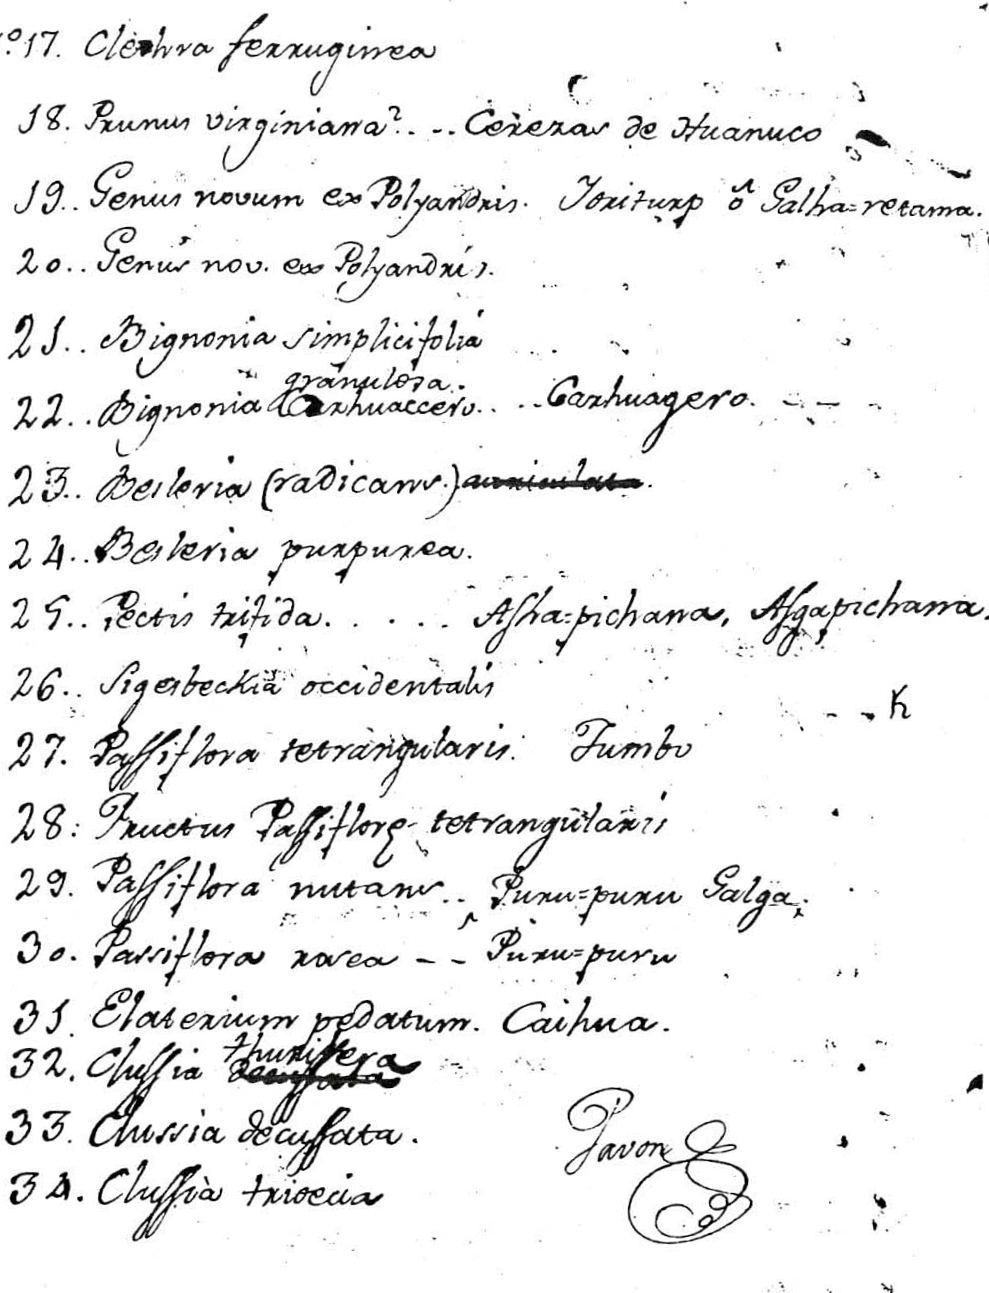 º17. Clethra ferruginea
18. Prunus virginiana? .. -- Cerezas de Huanuco
19.. Genus novum ex Polyandris. Toriturp ô Galha=retama.
20.. Genus nov. ex Polyandris.
21.. Bignonia simplicifolia
granulosa.
22.. Bignonia Carhuaccero. . . .. Carhuagero. - - —
23.. Besleria (radicans.) auriculata.
24.. Besleria purpurea.
25.. Pectis trifida. . . . . . Asha=pichana, Asgapichana.
26.. Sigesbeckia occidentalis
27. Passiflora tetrangularis. Tumbo
28: Fructus Passifloræ tetrangularis
29. Passiflora nutans .. Puru=puru Galga.
30. Passiflora rosea - - Puru=puru
31. Elaterium pedatum. Caihua.
thurifera
32. Clussia decussata
33. Clussia decussata.
34. Clussia trioecia
Pavon